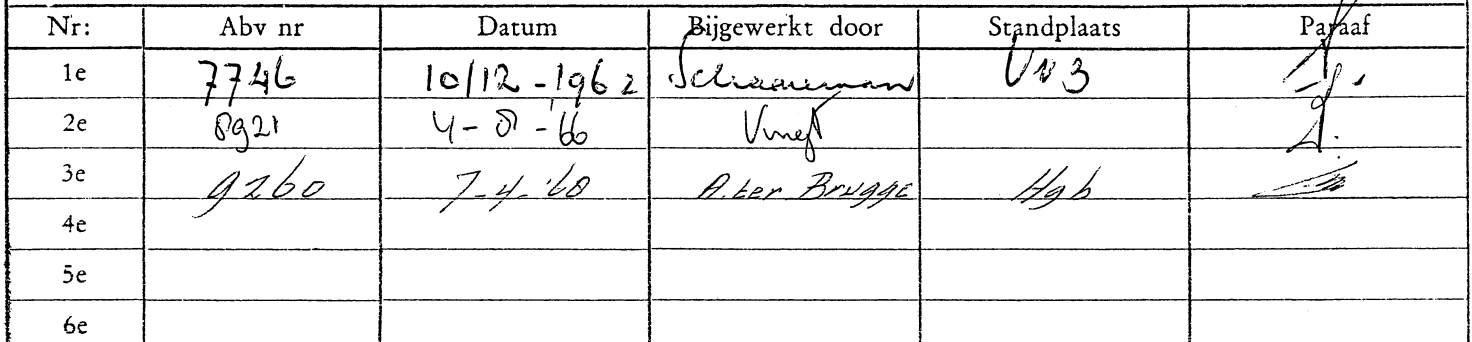 Nr: Abv nr Datum Bijgewerkt door Standplaats Paraaf
1e 7746 10/12-1962 Schaaneman Vv 3
2e 8921 4-8-'66
3e 9260 7-4-'68 A. ter Brugge Hgb
4e
5e
6e